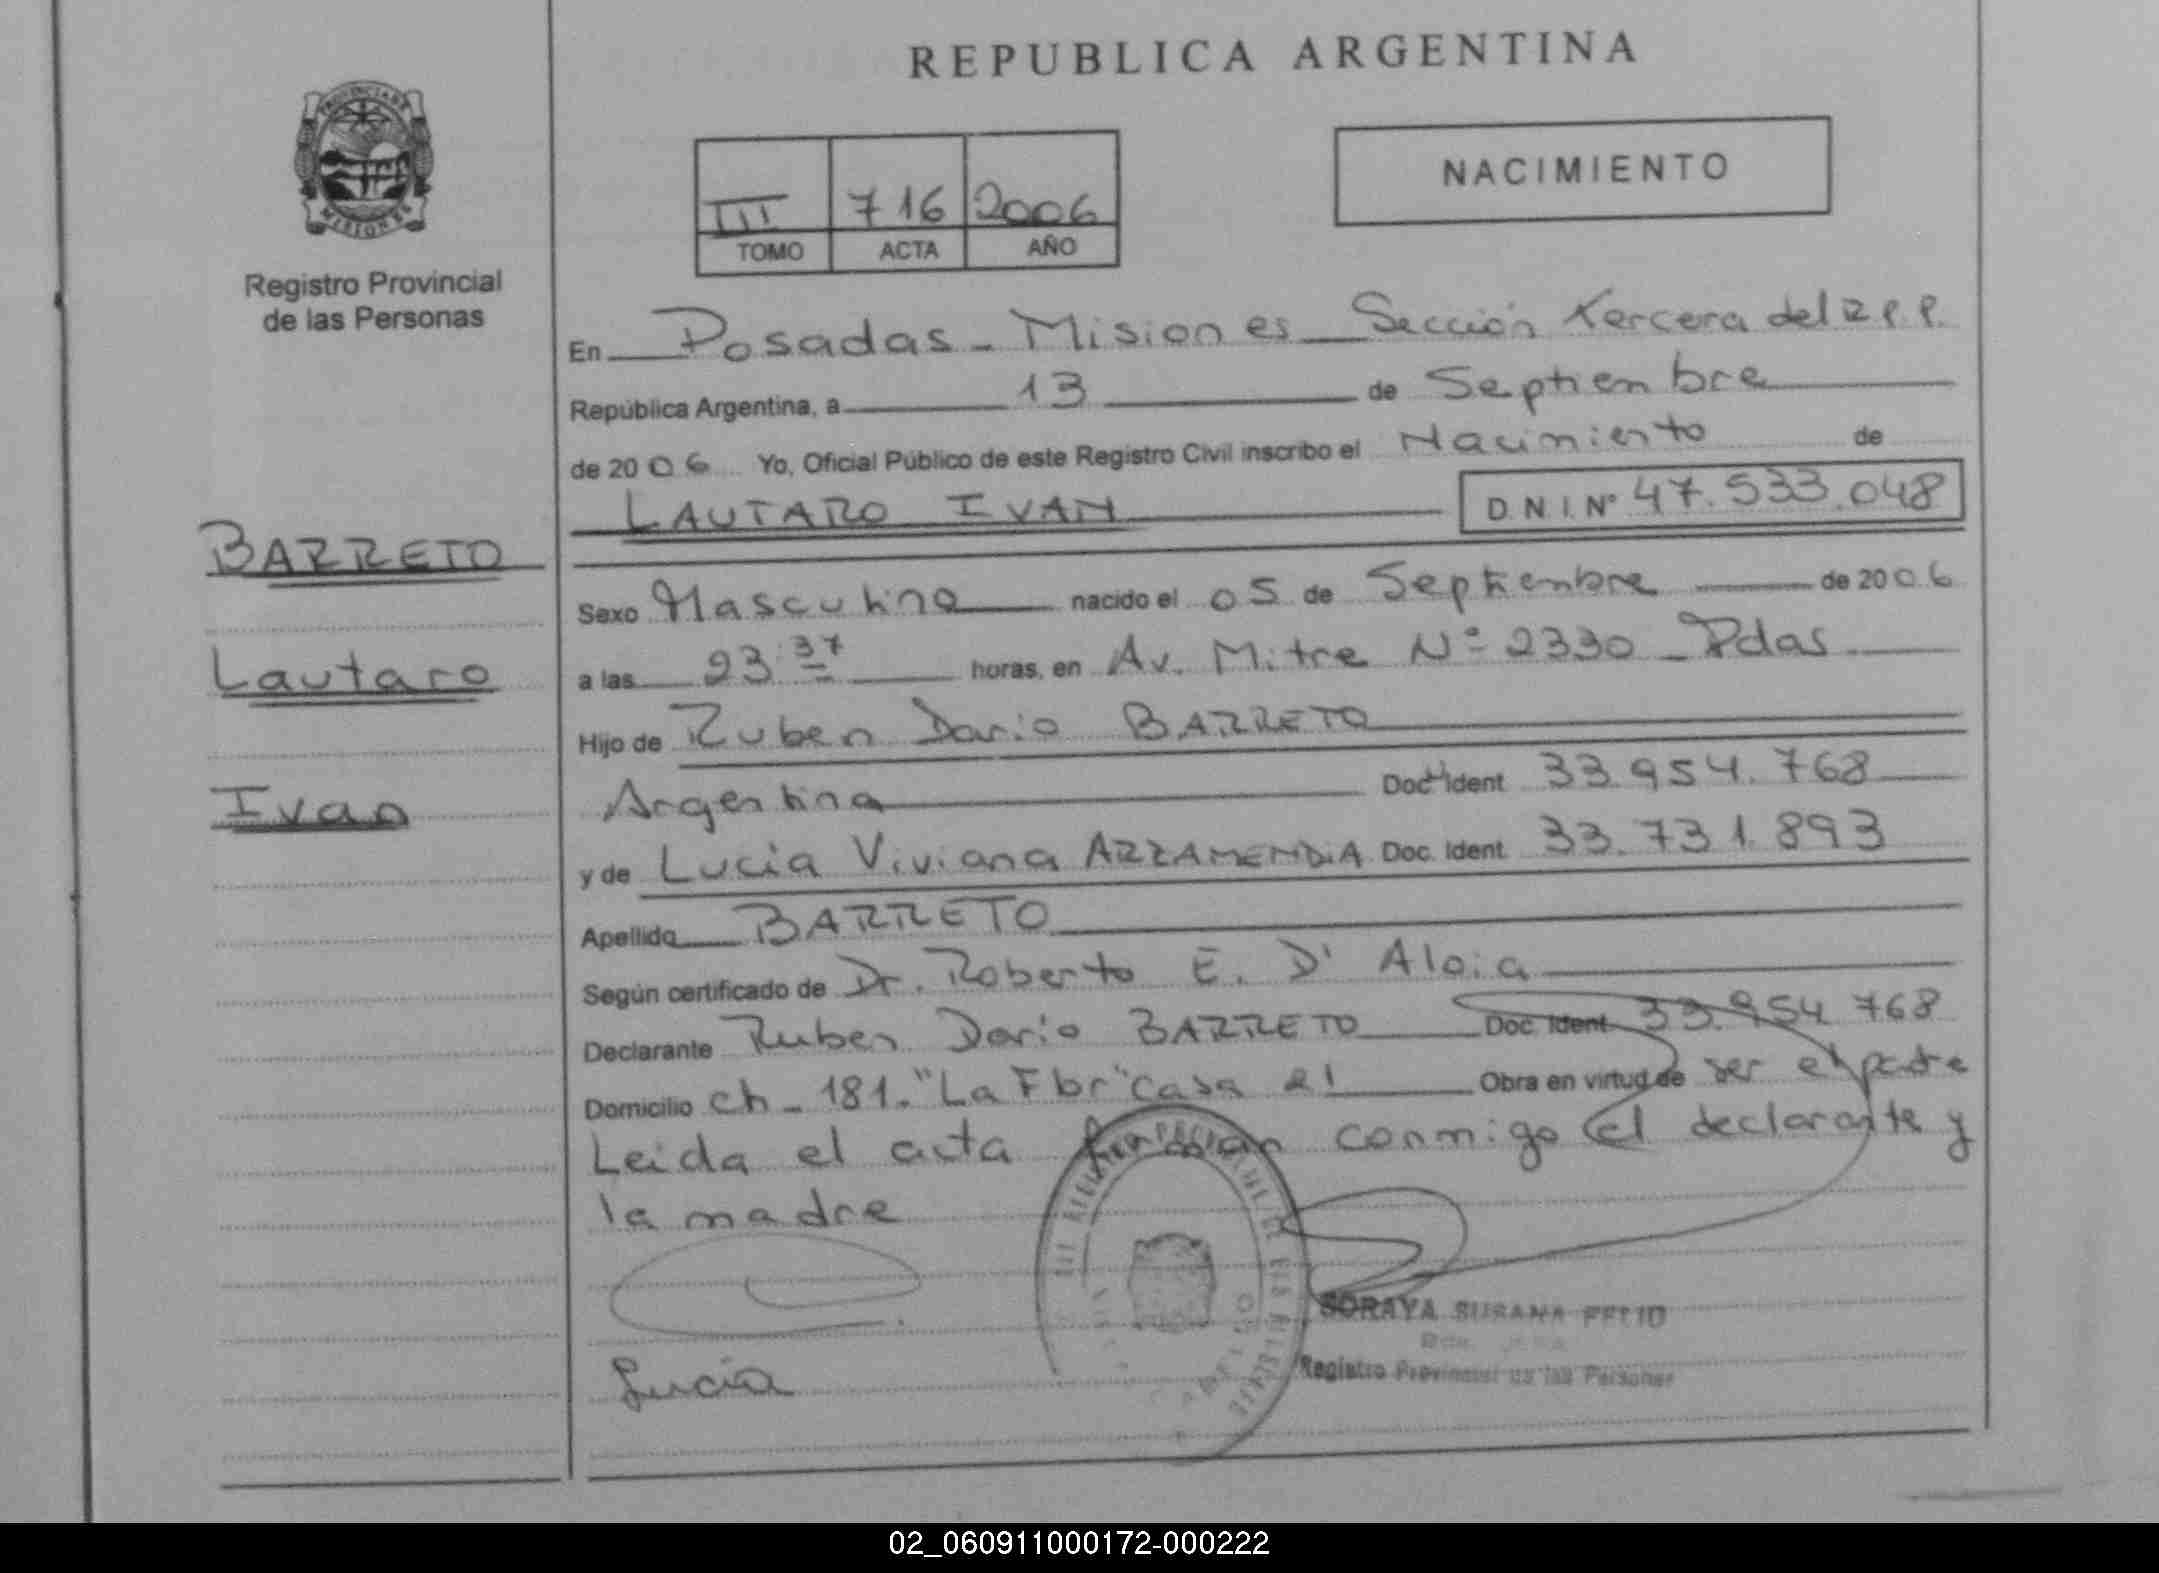 REPUBLICA ARGENTINA
PROVINCIA DE
MISIONES
Registro Provincial
de las Personas
III 716 2006
TOMO ACTA AÑO
NACIMIENTO
En Posadas - Misiones Sección tercera del R.P.P.
República Argentina, a 13 de Septiembre
de 2006 Yo, Oficial Público de este Registro Civil inscribo el Nacimiento de
LAUTARO IVAN D.N.I. Nº 47.533.048
BARRETO
Lautaro
Ivan
Sexo Masculino nacido el 05 de Septiembre de 2006
a las 23:37 horas, en Av. Mitre Nº 2330 - Pdas
Hijo de Ruben Dario BARRETO
Argentina Doc. Ident 33.954.768
y de Lucia Viviana ARRAMENDIA Doc. Ident. 33.731.893
Apellido BARRETO
Según certificado de Dr. Roberto E. D' Aloia
Declarante Ruben Dario BARRETO Doc. Ident. 33.954.768
Domicilio ch - 181. "La Flor" casa 21 Obra en virtud de ser el padre
Leida el acta firman conmigo el declarante y
la madre
Lucia
SORAYA SUSANA
Registro Provincial de las Personas
02_060911000172-000222